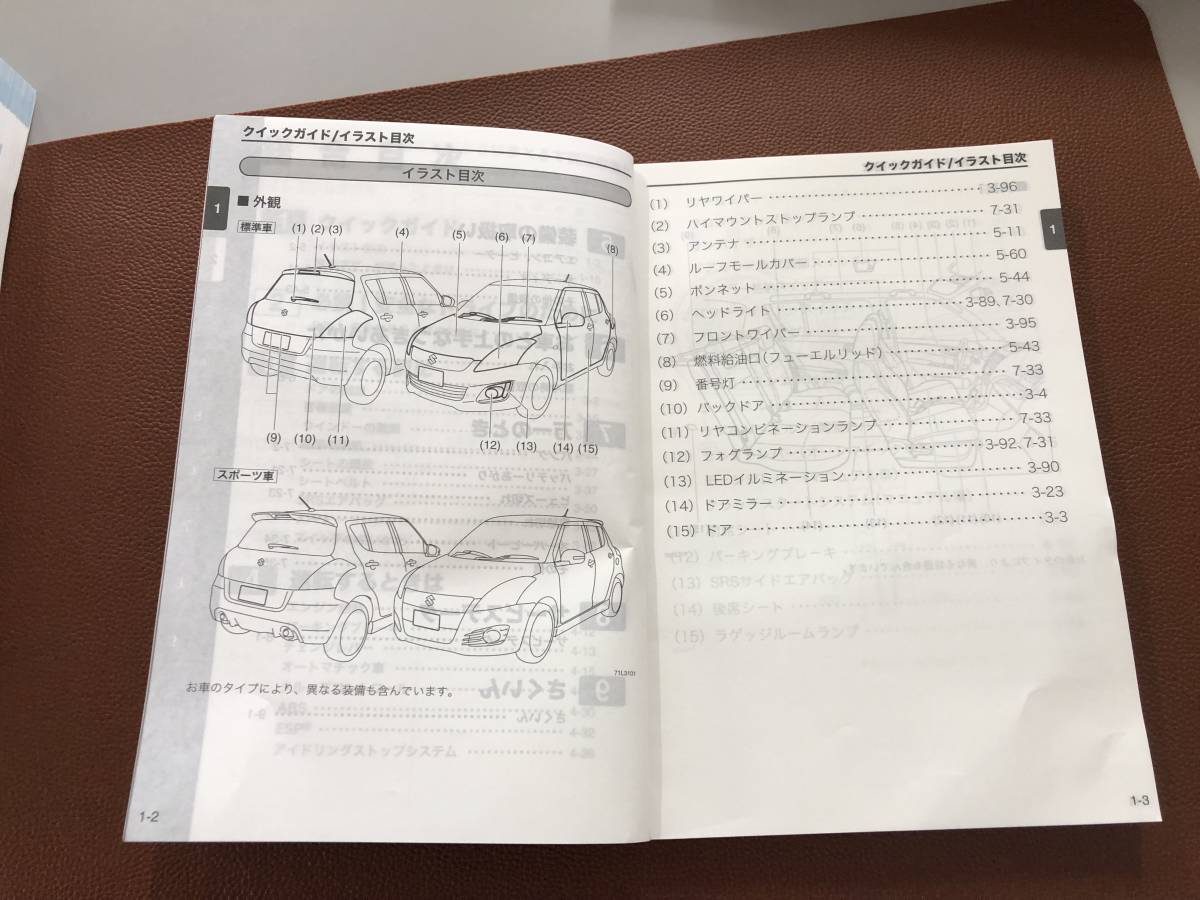 クイックガイド/イラスト目次
イラスト目次
1
■ 外観
標準車
(1) (2) (3) (4) (5) (6) (7) (8)
(9) (10) (11) (12) (13) (14) (15)
スポーツ車
71L3101
お車のタイプにより、異なる装備も含んでいます。
1-2
クイックガイド/イラスト目次
1
(1) リヤワイパー 3-96
(2) ハイマウントストップランプ 7-31
(3) アンテナ 5-11
(4) ルーフモールカバー 5-60
(5) ボンネット 5-44
(6) ヘッドライト 3-89、7-30
(7) フロントワイパー 3-95
(8) 燃料給油口(フューエルリッド) 5-43
(9) 番号灯 7-33
(10) バックドア 3-4
(11) リヤコンビネーションランプ 7-33
(12) フォグランプ 3-92、7-31
(13) LEDイルミネーション 3-90
(14) ドアミラー 3-23
(15) ドア 3-3
(12) パーキングブレーキ
(13) SRSサイドエアバッグ
(14) 後席シート
(15) ラゲッジルームランプ
1-3